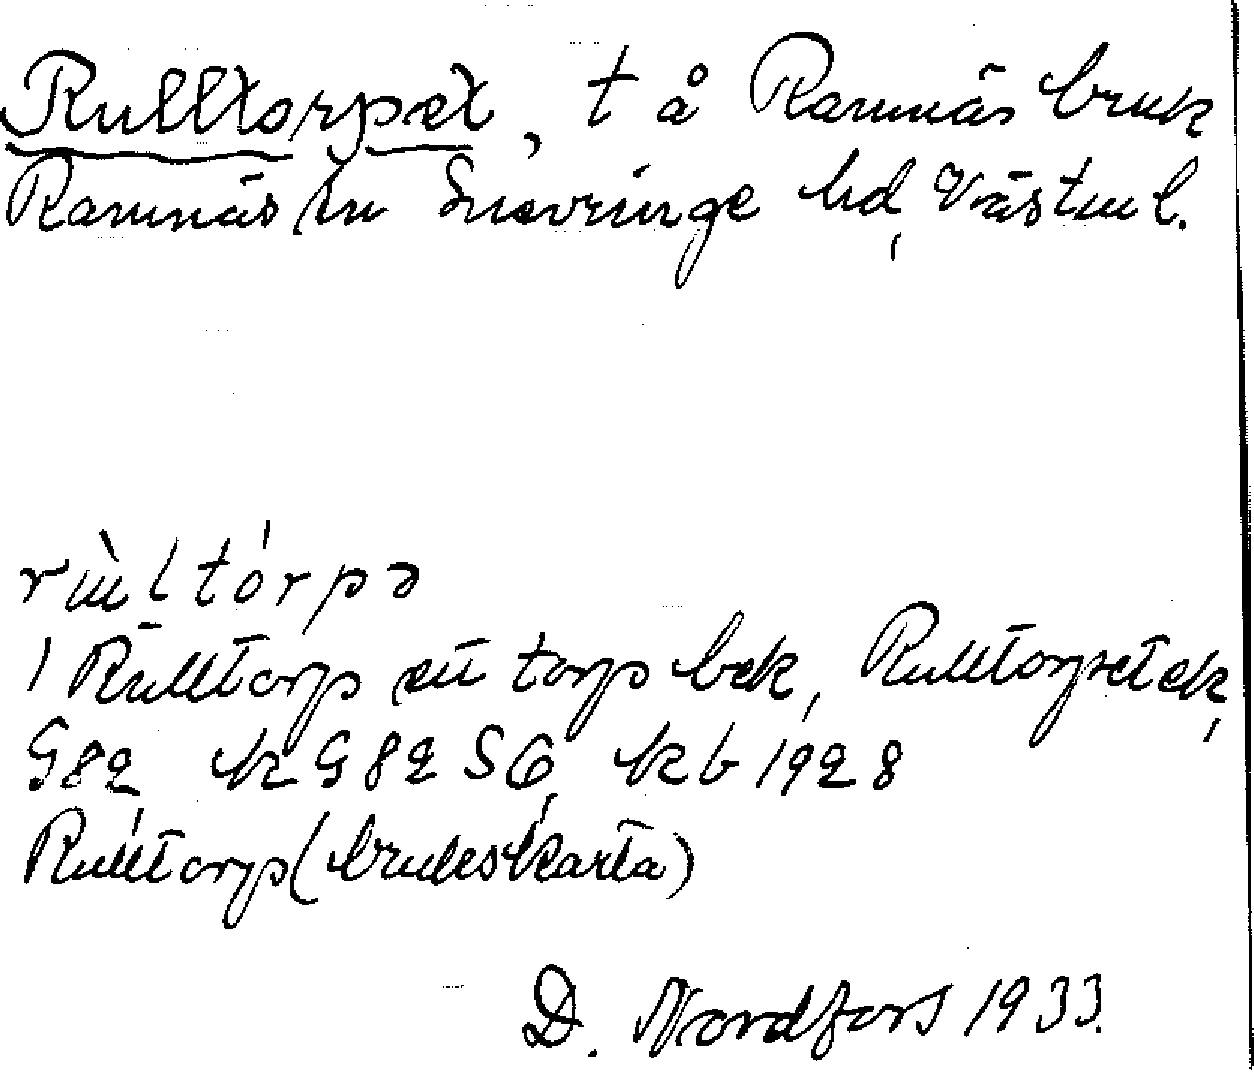 Rulltorpet, t å Ramnäs bruk
Ramnäs sn Snevringe hd, Västml.
rùltórpə
/ Rulltorp ett torp bek, Rulltorpet ek,
G82, k G82 S6, kb 1928
Rulltorp (brukskarta)
D. Nordfors 1933.